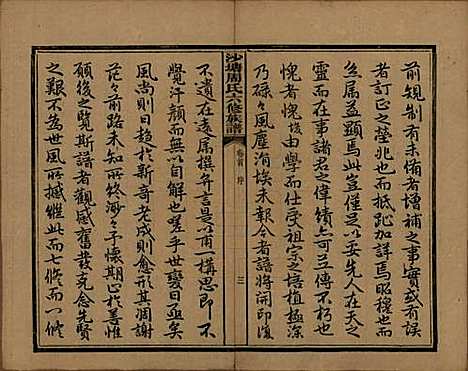 前規制有未備者增補之事實或有誤
者訂正之塋兆也而抵跎加詳焉昭穆也而
系屬益顯焉此豈僅是以妥先人在天之
靈而在事諸君之偉績亦可並傳不朽也
愧者愧俊由學而仕受祖宗之培植極深
乃碌々風塵涓埃未報今者譜將開印復
沙塘周氏六修族譜
卷首 序
三
不遺在遠屬撰弁言是以甫一構思即不
覺汗顏而無以自解也嗟乎世變日亟矣
風尚則日趨於新奇老成則愈形其凋謝
茫々前路未知所終渺々予懷期正於善惟
願後之覽斯譜者觀感舊發克念先賢
之艱不為世風所撼繼此而七修而八修